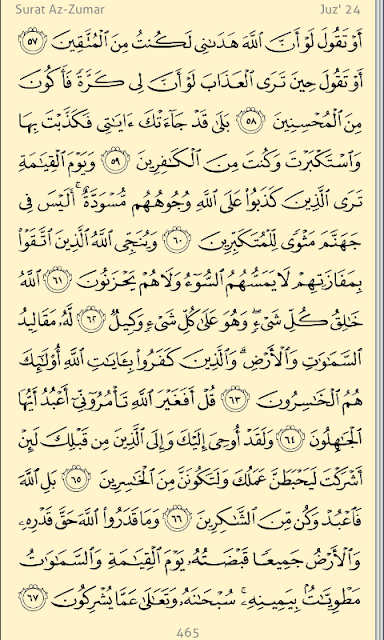 Surat Az-Zumar Juz' 24
أَوْ تَقُولَ لَوْ أَنَّ ٱللَّهَ هَدَىٰنِى لَكُنتُ مِنَ ٱلْمُتَّقِينَ ٥٧
أَوْ تَقُولَ حِينَ تَرَى ٱلْعَذَابَ لَوْ أَنَّ لِى كَرَّةً فَأَكُونَ
مِنَ ٱلْمُحْسِنِينَ ٥٨ بَلَىٰ قَدْ جَآءَتْكَ ءَايَٰتِى فَكَذَّبْتَ بِهَا
وَٱسْتَكْبَرْتَ وَكُنتَ مِنَ ٱلْكَٰفِرِينَ ٥٩ وَيَوْمَ ٱلْقِيَٰمَةِ
تَرَى ٱلَّذِينَ كَذَبُوا۟ عَلَى ٱللَّهِ وُجُوهُهُم مُّسْوَدَّةٌ ۚ أَلَيْسَ فِى
جَهَنَّمَ مَثْوًى لِّلْمُتَكَبِّرِينَ ٦٠ وَيُنَجِّى ٱللَّهُ ٱلَّذِينَ ٱتَّقَوْا۟
بِمَفَازَتِهِمْ لَا يَمَسُّهُمُ ٱلسُّوٓءُ وَلَا هُمْ يَحْزَنُونَ ٦١ ٱللَّهُ
خَٰلِقُ كُلِّ شَىْءٍ ۖ وَهُوَ عَلَىٰ كُلِّ شَىْءٍ وَكِيلٌ ٦٢ لَّهُۥ مَقَالِيدُ
ٱلسَّمَٰوَٰتِ وَٱلْأَرْضِ ۗ وَٱلَّذِينَ كَفَرُوا۟ بِـَٔايَٰتِ ٱللَّهِ أُو۟لَٰٓئِكَ
هُمُ ٱلْخَٰسِرُونَ ٦٣ قُلْ أَفَغَيْرَ ٱللَّهِ تَأْمُرُوٓنِّىٓ أَعْبُدُ أَيُّهَا
ٱلْجَٰهِلُونَ ٦٤ وَلَقَدْ أُوحِىَ إِلَيْكَ وَإِلَى ٱلَّذِينَ مِن قَبْلِكَ لَئِنْ
أَشْرَكْتَ لَيَحْبَطَنَّ عَمَلُكَ وَلَتَكُونَنَّ مِنَ ٱلْخَٰسِرِينَ ٦٥ بَلِ ٱللَّهَ
فَٱعْبُدْ وَكُن مِّنَ ٱلشَّٰكِرِينَ ٦٦ وَمَا قَدَرُوا۟ ٱللَّهَ حَقَّ قَدْرِهِۦ
وَٱلْأَرْضُ جَمِيعًا قَبْضَتُهُۥ يَوْمَ ٱلْقِيَٰمَةِ وَٱلسَّمَٰوَٰتُ
مَطْوِيَّٰتٌۢ بِيَمِينِهِۦ ۚ سُبْحَٰنَهُۥ وَتَعَٰلَىٰ عَمَّا يُشْرِكُونَ ٦٧
465